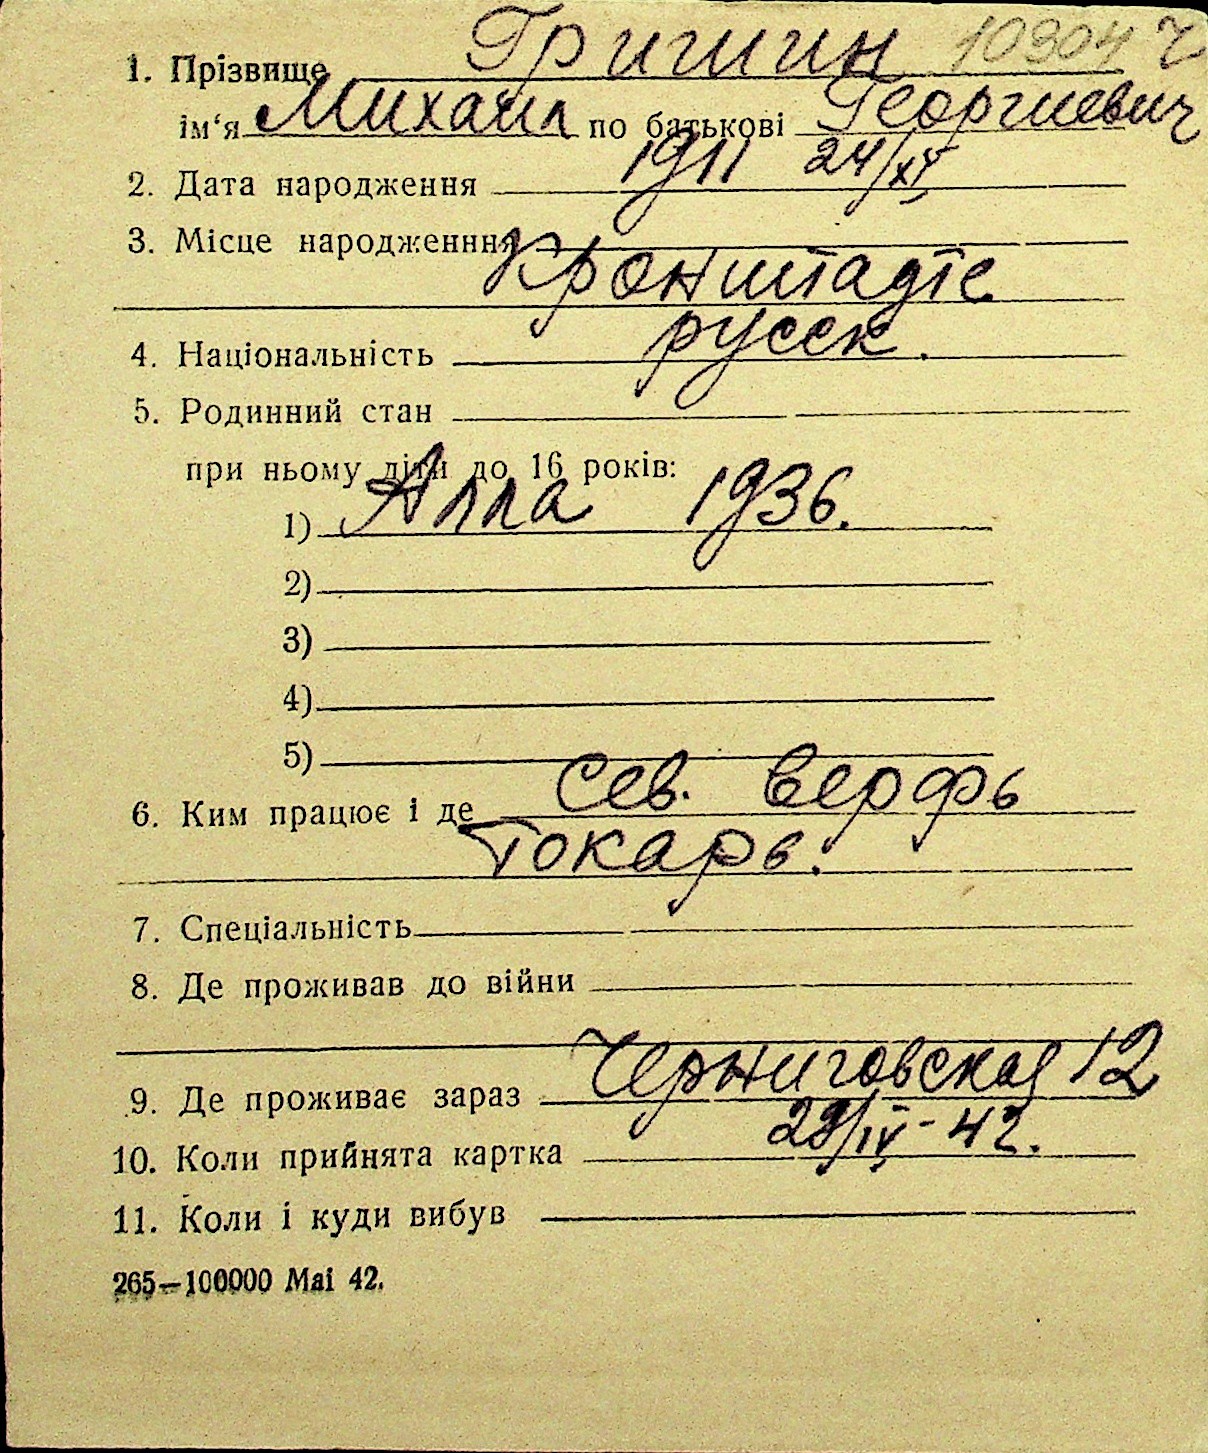 1. Прізвище Гришин 10904 Ч
ім'я Михаил по батькові Георгиевич
2. Дата народження 1911 24/XI
3. Місце народженння Кронштадте
4. Національність русск.
5. Родинний стан
при ньому діти до 16 років:
1) Алла 1936.
2)
3)
4)
5)
6. Ким працює і де Сев. верфь
Токарь.
7. Спеціальність
8. Де проживав до війни
9. Де проживає зараз Черниговская 12
10. Коли прийнята картка 29/IV-42.
11. Коли і куди вибув
265—100000 Mai 42.